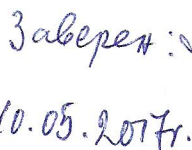 Заверен:
10.05.2017г.